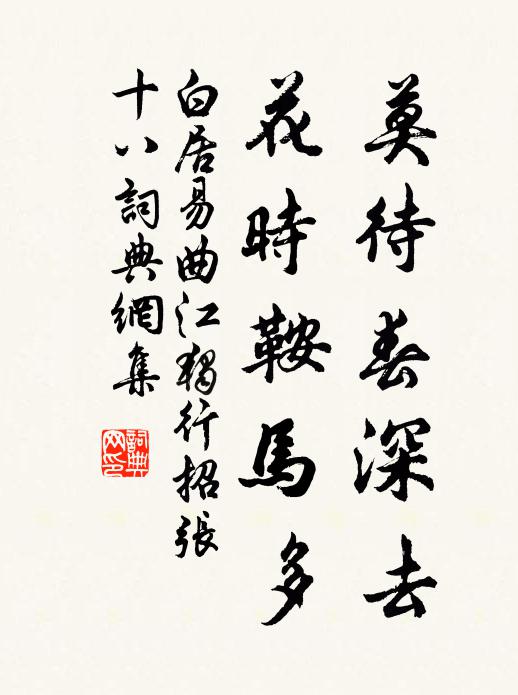 莫待春深去
花時鞍馬多
白居易曲江獨行招張
十八詞典網集
詞典
网印